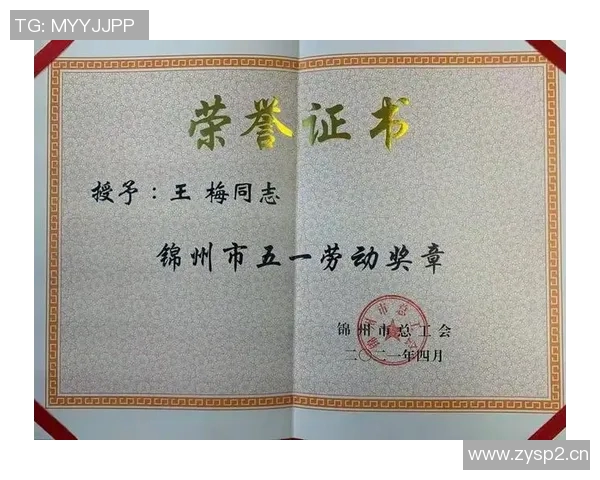 TG: MYYJJPP
荣誉证书
授予：王 梅同志
锦州市五一劳动奖章
锦州市总工会
锦州市总工会
二〇二一年四月
www.zysp2.cn